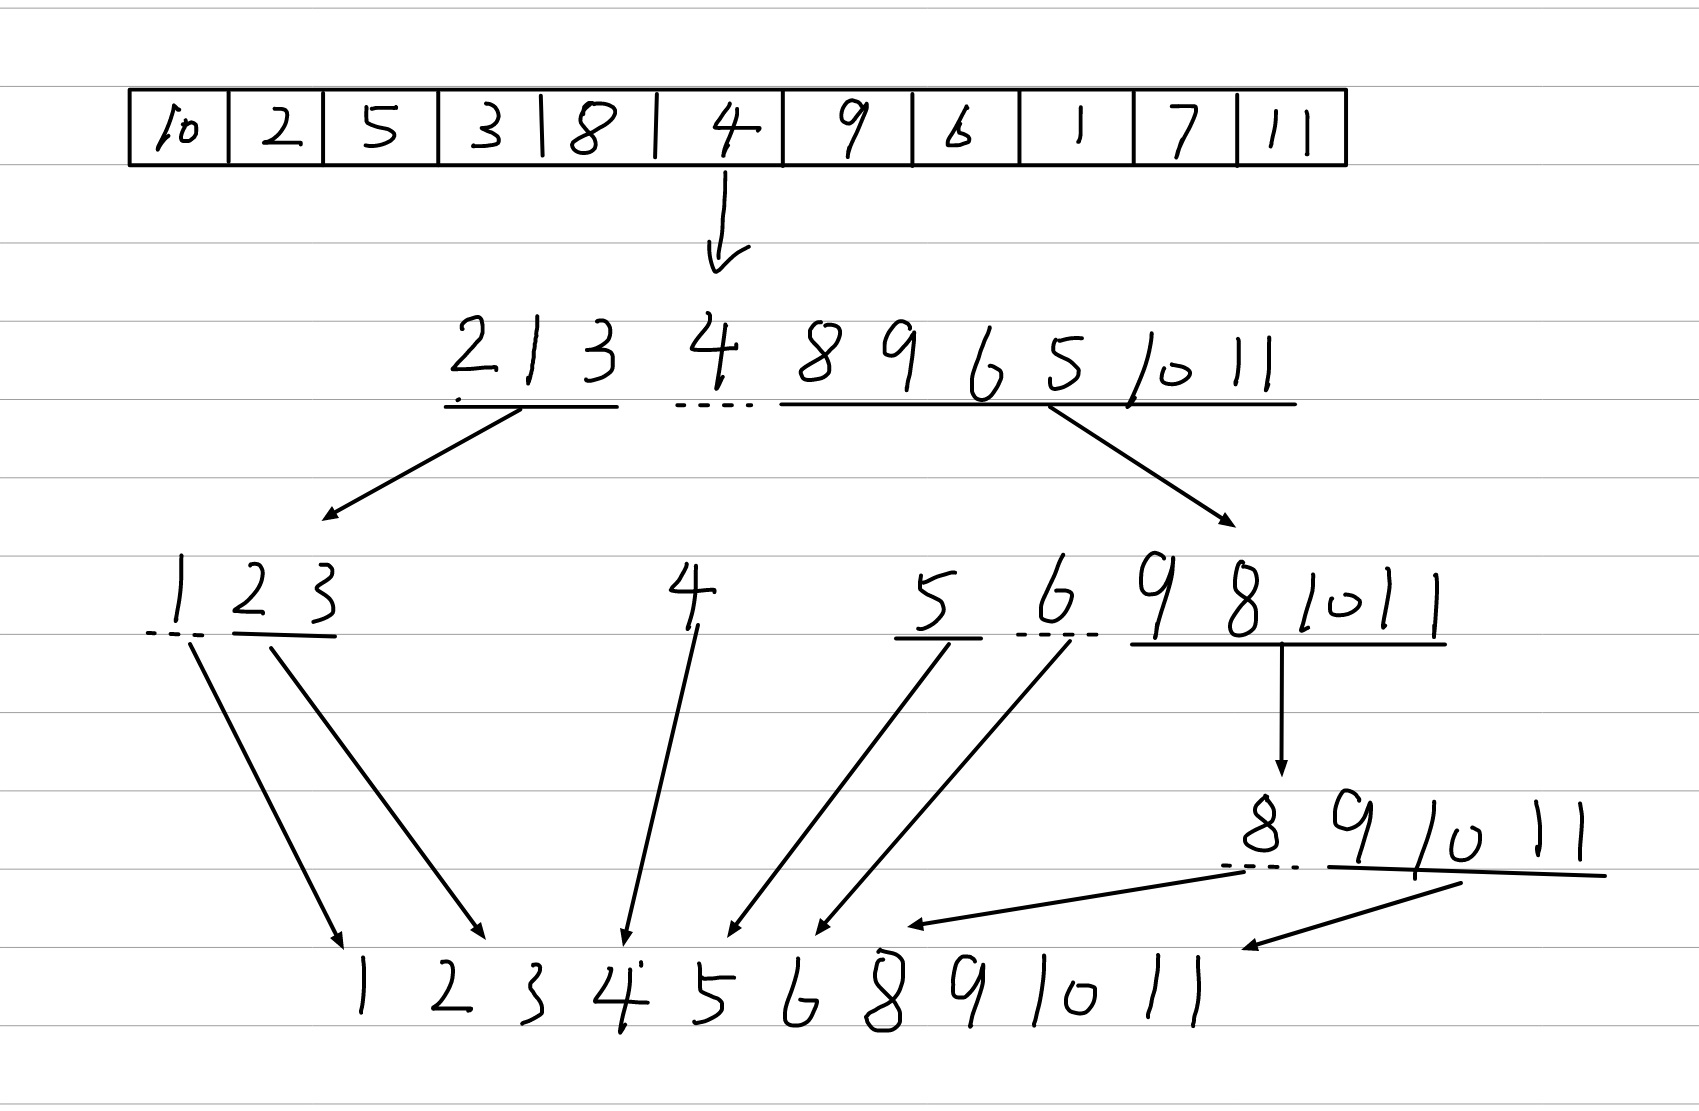 10 2 5 3 8 4 9 6 1 7 11
2 1 3 4 8 9 6 5 10 11
1 2 3 4 5 6 9 8 10 11
8 9 10 11
1 2 3 4 5 6 8 9 10 11